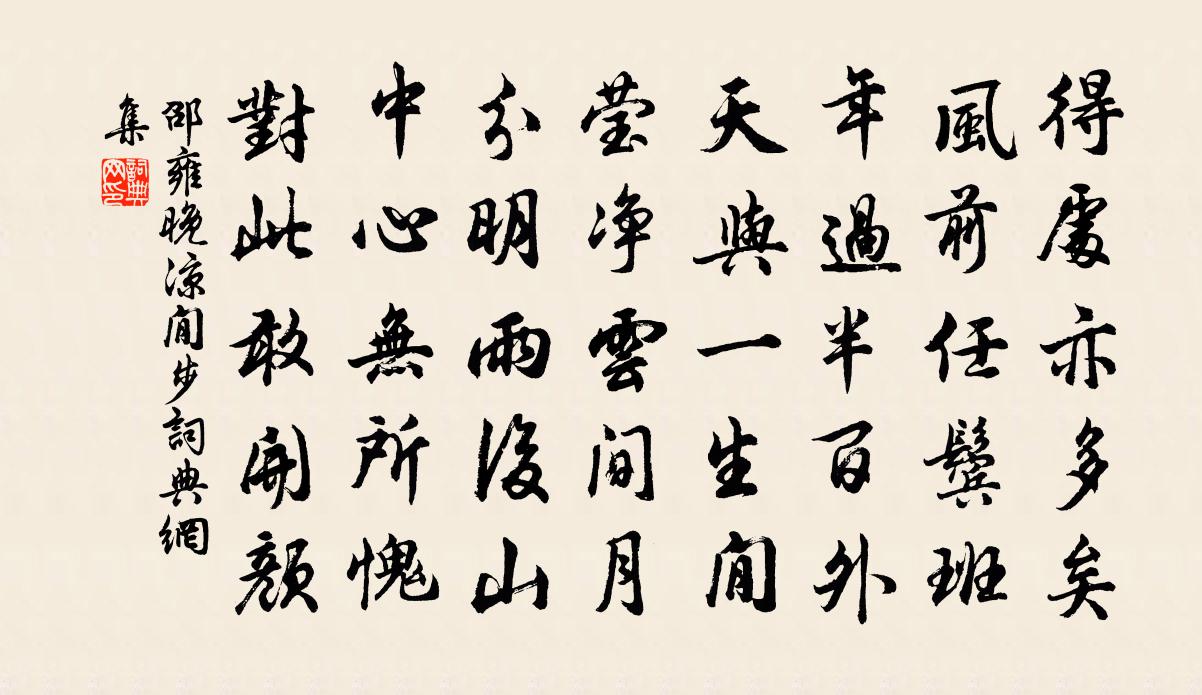 得處亦多矣
風前任鬢班
年過半百外
天與一生閒
瑩淨雲間月
分明雨後山
中心無所愧
對此敢開顏
邵雍晚涼閒步詞典網
集
詞典
网印